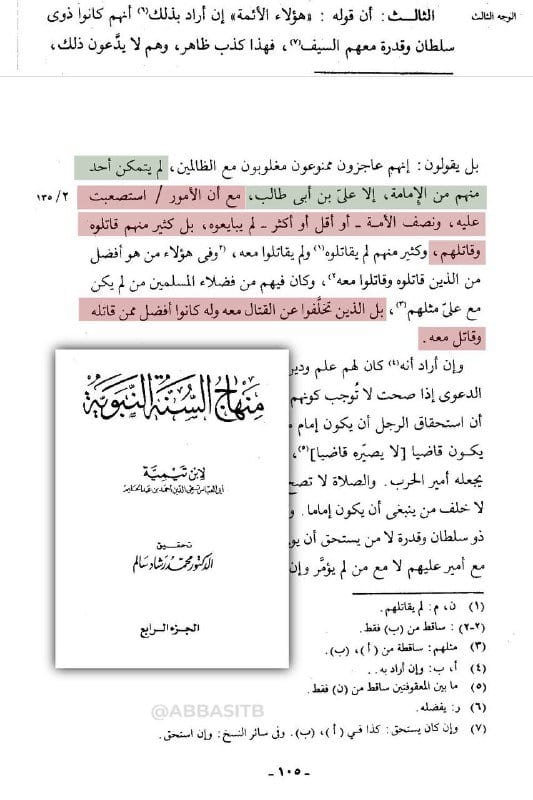 الوجه الثالث
الثالث : أن قوله : «هؤلاء الأئمة» إن أراد بذلك(٦) أنهم كانوا ذوى
سلطان وقدرة معهم السيف(٧)، فهذا كذب ظاهر، وهم لا يدَّعون ذلك،
بل يقولون: إنهم عاجزون ممنوعون مغلوبون مع الظالمين، لم يتمكن أحد
منهم من الإمامة، إلا علىّ بن أبى طالب، مع أن الأمور / استصعبت
٢/ ١٣٥
عليه، ونصف الأمة ـ أو أقل أو أكثر ـ لم يبايعوه، بل كثير منهم قاتلوه
وقاتلهم، وكثير منهم لم يقاتلوه(١) ولم يقاتلوا معه، (٢وفى هؤلاء من هو أفضل
من الذين قاتلوه وقاتلوا معه٢)، وكان فيهم من فضلاء المسلمين من لم يكن
مع علىّ مثلهم(٣)، بل الذين تخلَّفوا عن القتال معه وله كانوا أفضل ممن قاتله
وقاتل معه.
وإن أراد أنه(٤) كان لهم علم
الدعوى إذا صحت لا تُوجب كونهم
أن استحقاق الرجل أن يكون إمام
يكون قاضيا [لا يصيّره قاضيا](٥)،
يجعله أمير الحرب. والصلاة لا
لا خلف من ينبغى أن يكون إماما.
ذو سلطان وقدرة لا من يستحق أن
مع أمير عليهم لا مع من لم يؤمَّر وإن
منهاج السنة النبوية
لابن تيمية
أبى العباس تقى الدين أحمد بن عبد الحليم
تحقيق
الدكتور محمد رشاد سالم
الجزء الرابع
(١) ن، م: لم يقاتلهم.
(٢-٢) : ساقط من (ب) فقط.
(٣) مثلهم: ساقطة من (أ)، (ب).
(٤) أ، ب: وإن أراد به..
(٥) ما بين المعقوفتين ساقط من (ن) فقط.
(٦) ر: يفضله.
(٧) وإن كان يستحق: كذا فى (أ)، (ب). وفى سائر النسخ: وإن استحق.
@ABBASITB
ـ ١٠٥ ـ